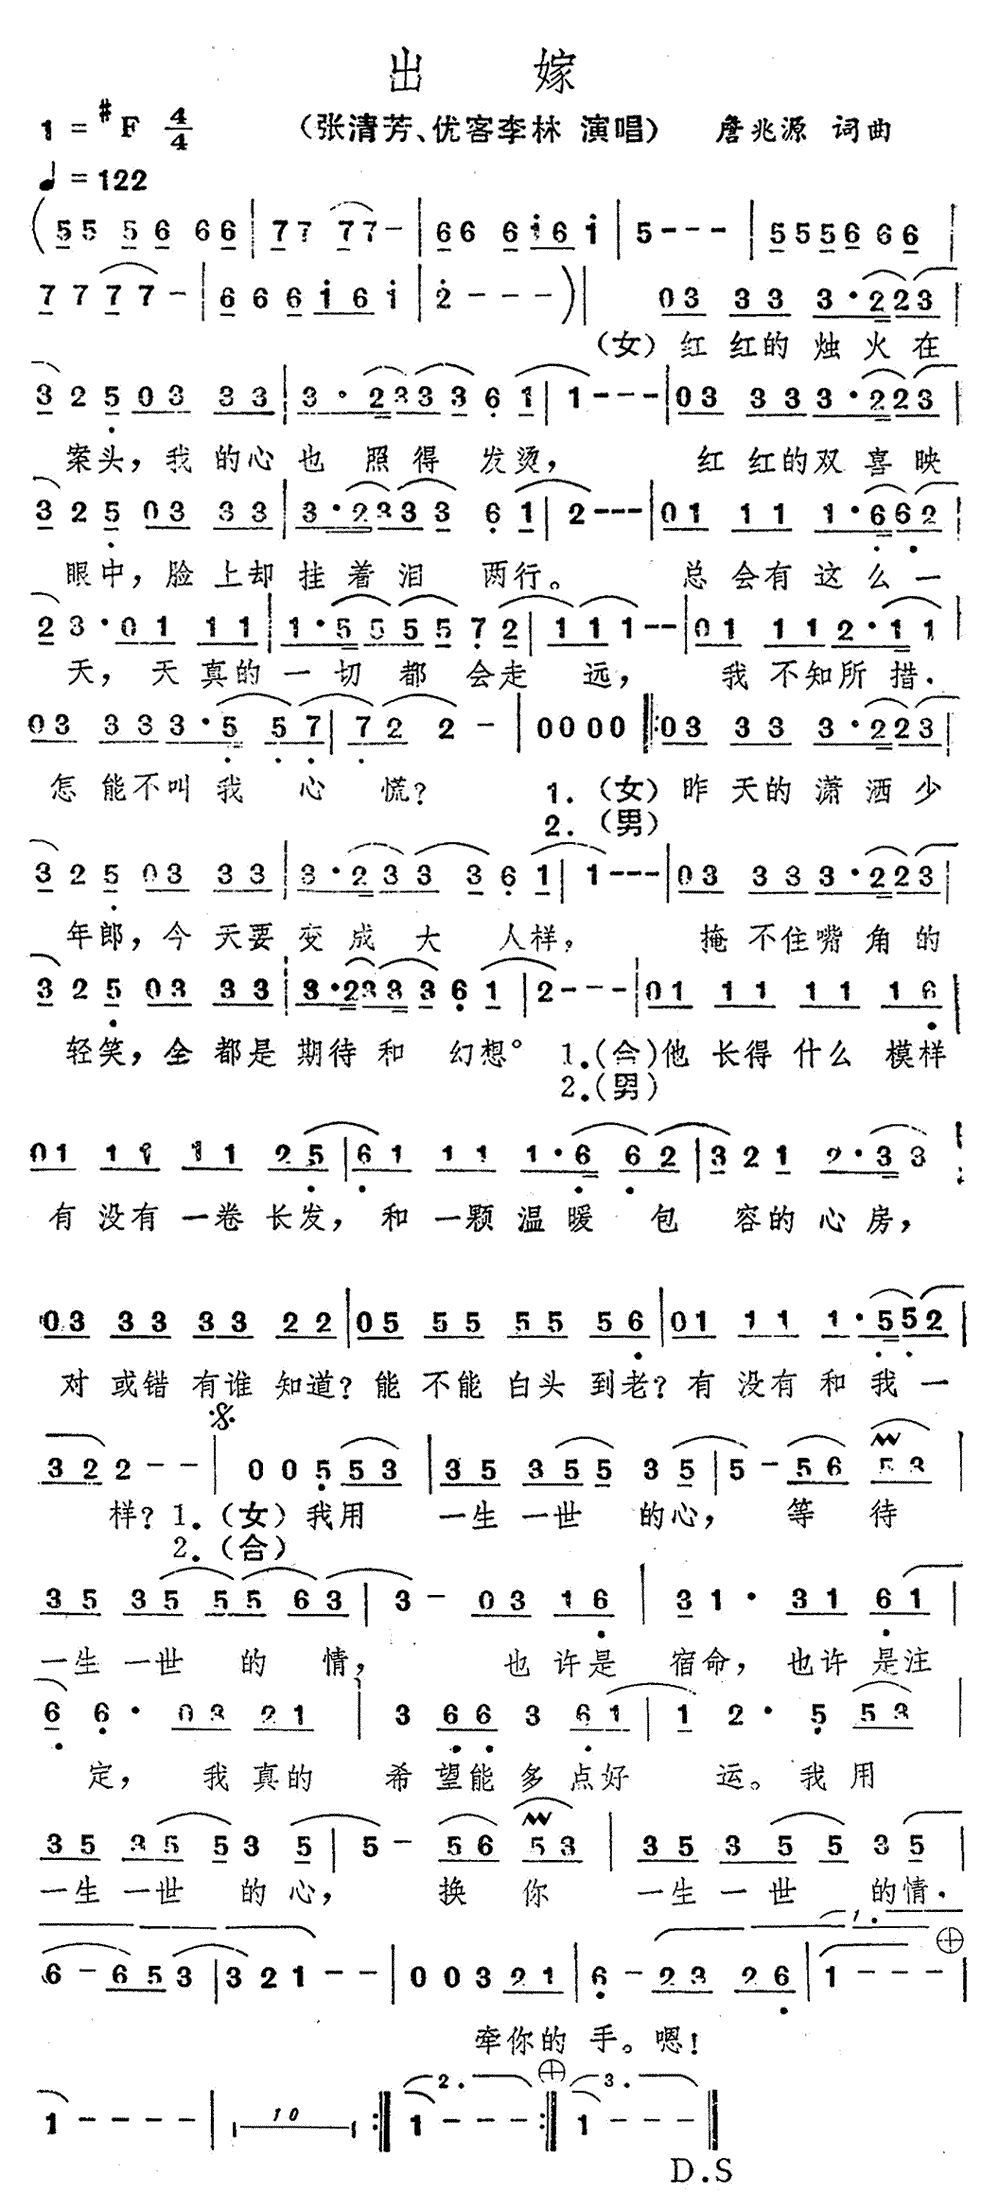 出 嫁
1 = #F 4/4 （张清芳、优客李林 演唱） 詹兆源 词曲
♩= 122
(55 56 66 | 77 77 - | 66 6i6 i | 5 - - - | 5556 66 |
7 7 7 7 - | 6 6 6 i 6 i | 2 - - - ) | 03 33 3·223 |
（女）红 红的 烛 火 在
3 2 5 03 33 | 3·23336 1 | 1 - - - | 03 333·223 |
案头，我 的心 也 照 得 发烫， 红 红的双 喜 映
3 2 5 03 33 | 3·2333 6 1 | 2 - - - | 01 11 1·662 |
眼中，脸 上却 挂 着 泪 两行。 总 会有 这 么 一
2 3·01 11 | 1·5555 7 2 | 1 1 1 - - | 01 112·11 |
天，天真的 一 切 都 会走 远， 我 不知所 措．
03 333·5 57 | 7 2 2 - | 0000 ‖: 03 33 3·223 |
怎 能不叫 我 心 慌？ 1．（女）昨 天的 潇 洒 少
2．（男）
3 2 5 03 33 | 3·233 36 1 | 1 - - - | 03 333·223 |
年郎，今 天要 变 成 大 人样， 掩 不住嘴 角 的
3 2 5 03 33 | 3·233 36 1 | 2 - - - | 01 11 11 16 |
轻笑，全 都是 期待 和 幻想。 1．（合）他 长得 什么 模样
2．（男）
01 11 11 25 | 61 11 1·6 62 | 3 21 2·33 |
有 没有 一卷 长发，和 一颗 温 暖 包 容的 心 房，
03 33 33 22 | 05 55 55 56 | 01 11 1·552 |
对 或错 有谁 知道？能 不能 白头 到老？有 没有 和 我 一
322 - - | 0 0 5 53 | 35 355 3 5 | 5 - 56 53 |
样？1．（女）我用 一生 一世 的心， 等 待
2．（合）
35 35 55 63 | 3 - 03 16 | 31· 31 61 |
一生 一世 的 情， 也 许是 宿命，也许 是注
6 6· 03 21 | 3 66 3 61 | 1 2· 5 53 |
定， 我 真的 希 望能 多 点好 运。我 用
35 35 53 5 | 5 - 56 53 | 35 3 5 5 3 5 |
一生 一世 的 心， 换 你 一生 一 世 的情．
6 - 653 | 3 2 1 - - | 0 0 3 21 | 6 - 23 26 | 1．1 - - - |
牵你的 手。嗯！
1 - - - - | 10 :‖ 2．1 - - - :‖ 3．1 - - - ‖
D.S